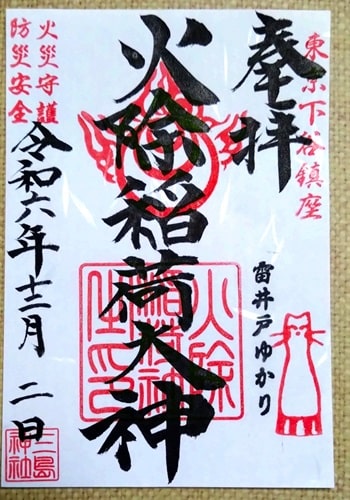 東京下谷鎮座
奉拝
雷井戸ゆかり
火除稲荷大神
火除
稲荷神
火災守護
防災安全
令和六年十二月二日
三島
神社